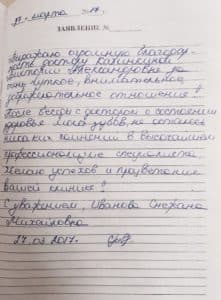 27 марта 2017.
ЗАЯВЛЕНИЕ №
Выражаю огромную благодар-
ность доктору
Виктории Александровне за
очень чуткое, внимательное,
доброжелательное отношение!
После беседы с доктором о состоянии
здоровья моих зубов, не осталось
никаких сомнений в высочайшем
профессионализме специалиста.
Желаю успехов и процветания
Вашей клинике!
С уважением, Иванова Снежана
Михайловна
27.03.2017.